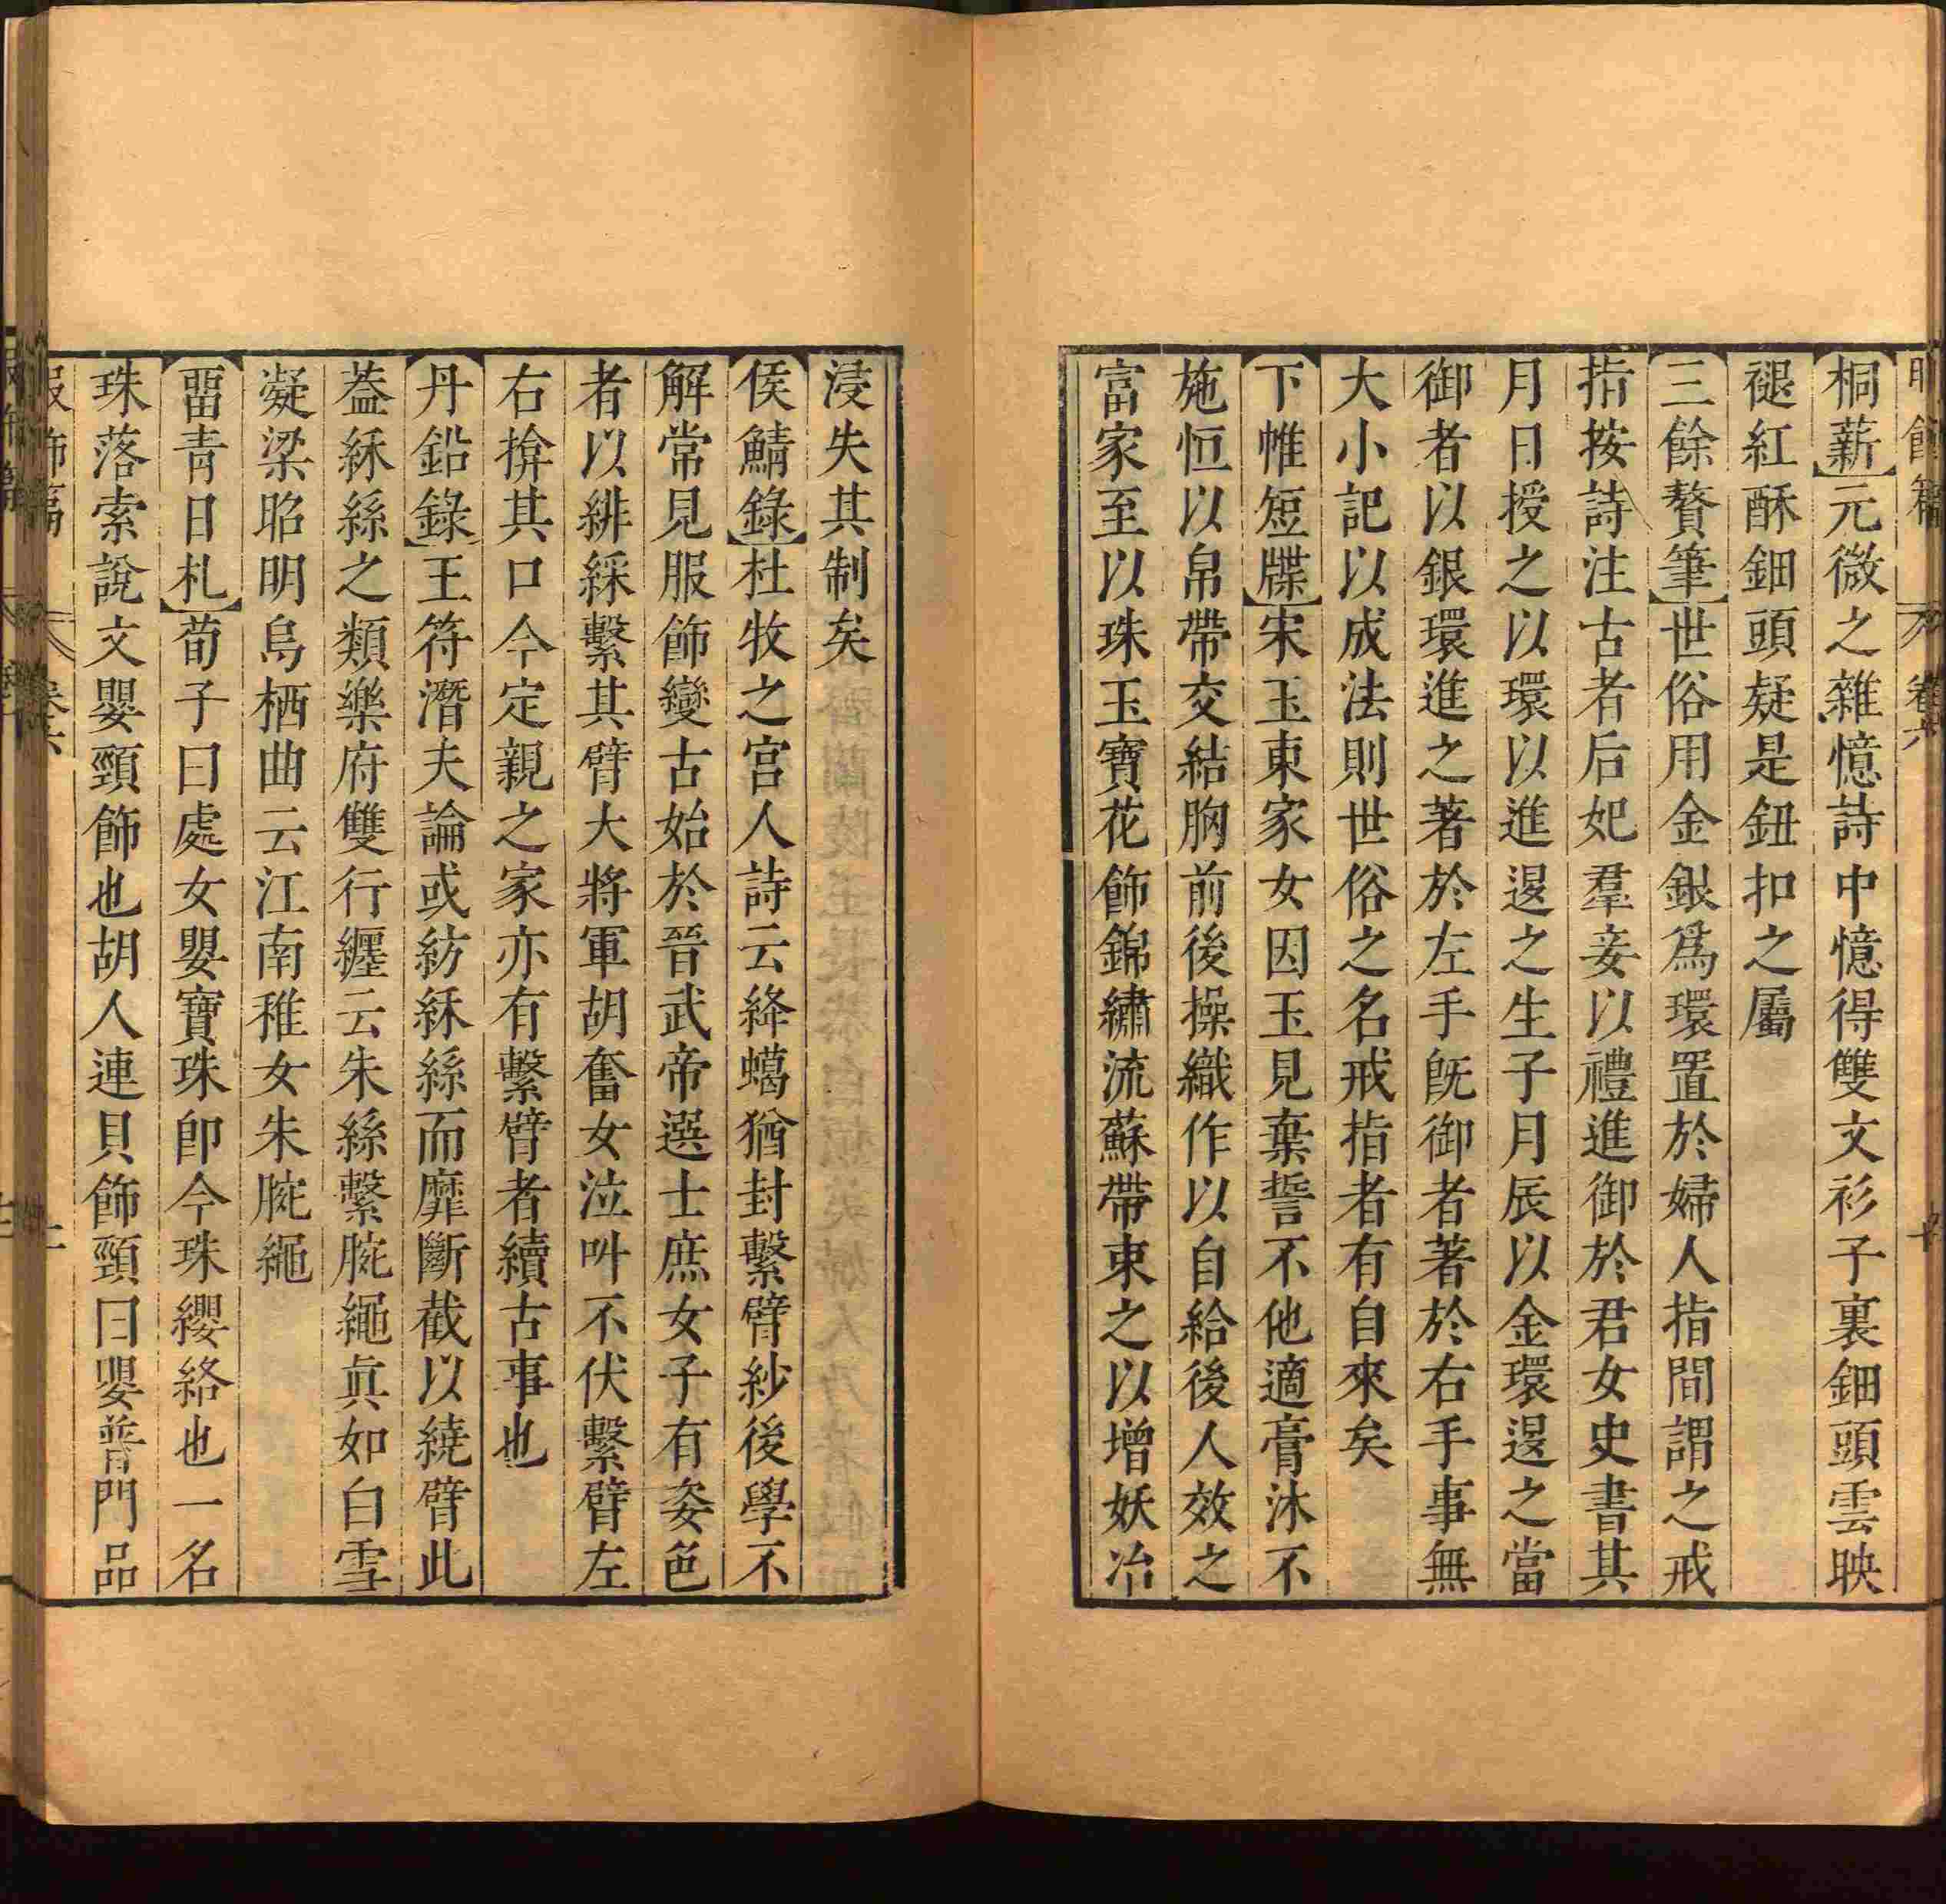 桐薪元微之雜憶詩中憶得雙文衫子裏鈿頭雲映
褪紅酥鈿頭疑是鈕扣之屬
三餘贅筆世俗用金銀爲環置於婦人指間謂之戒
指按詩注古者后妃羣妾以禮進御於君女史書其
月日授之以環以進𨓆之生子月辰以金環𨓆之當
御者以銀環進之著於左手旣御者著於右手事無
大小記以成法則世俗之名戒指者有自來矣
下帷短牒宋玉東家女因玉見棄誓不他適膏沐不
施恒以帛帶交結胸前後操織作以自給後人效之
富家至以珠玉寶花飾錦繡流蘇帶束之以增妖冶
浸失其制矣
侯鯖錄杜牧之宮人詩云絳蠟猶封繫臂紗後學不
解常見服飾變古始於晉武帝選士庶女子有姿色
者以緋綵繫其臂大將軍胡奮女泣呌不伏繫臂左
右揜其口今定親之家亦有繫臂者續古事也
丹鉛錄王符潛夫論或紡綵絲而靡斷截以繞臂此
葢綵絲之類樂府雙行纏云朱絲繫腕繩眞如白雪
凝梁昭明烏栖曲云江南稚女朱腕繩
畱青日札荀子曰處女嬰寶珠卽今珠纓絡也一名
珠落索說文嬰頸飾也胡人連貝飾頸曰嬰普門品
卷六